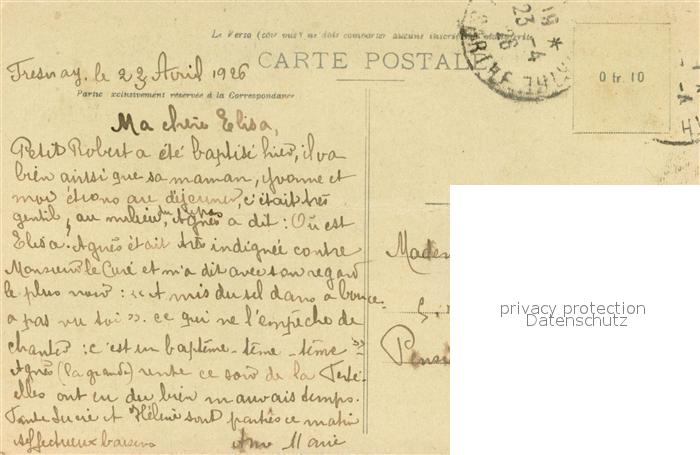 Le Verso (côté vue) ne doit comporter aucune
CARTE POSTALE
19 *
23-4
26
0 fr. 10
Fresnay, le 23 Avril 1926
Partie exclusivement réservée à la Correspondance
Ma chère Elisa,
Petit Robert a été baptisé hier, il va
bien ainsi que sa maman, Yvonne et
moi étions au déjeuner, c'était très
gentil, au milieu du repas Agnès a dit : Où est
Elisa. Agnès était très indignée contre
Monsieur le Curé et m'a dit avec son regard
le plus noir : « A mis du sel dans a bouce
a pas vu toi ». ce qui ne l'empêche de
chanter : c'est un baptême - tême - tême "
Agnès (la grande) rentre ce soir de la Ferté
elles ont eu du bien mauvais temps.
Tante Lucie et Hélène sont parties ce matin
affectueux baisers
Anne Marie
Madem
Pensi
privacy protection
Datenschutz